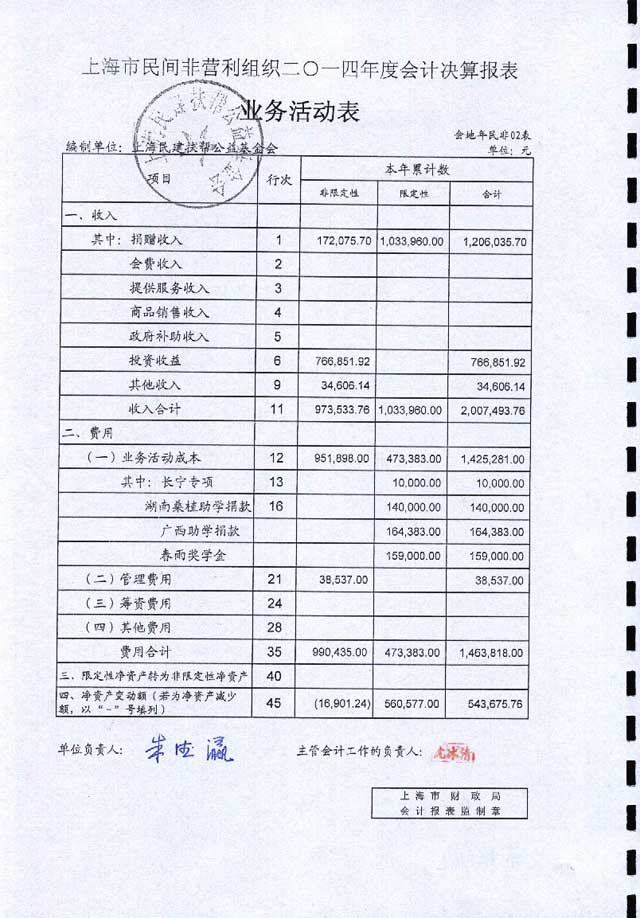 上海市民间非营利组织二〇一四年度会计决算报表
业务活动表
会地年民非02表
编制单位：上海民建扶帮公益基金会 单位：元
项目 行次 本年累计数
非限定性 限定性 合计
一、收入
其中：捐赠收入 1 172,075.70 1,033,960.00 1,206,035.70
会费收入 2
提供服务收入 3
商品销售收入 4
政府补助收入 5
投资收益 6 766,851.92 766,851.92
其他收入 9 34,606.14 34,606.14
收入合计 11 973,533.76 1,033,960.00 2,007,493.76
二、费用
（一）业务活动成本 12 951,898.00 473,383.00 1,425,281.00
其中：长宁专项 13 10,000.00 10,000.00
湖南桑植助学捐款 16 140,000.00 140,000.00
广西助学捐款 164,383.00 164,383.00
春雨奖学金 159,000.00 159,000.00
（二）管理费用 21 38,537.00 38,537.00
（三）筹资费用 24
（四）其他费用 28
费用合计 35 990,435.00 473,383.00 1,463,818.00
三、限定性净资产转为非限定性净资产 40
四、净资产变动额（若为净资产减少 45 (16,901.24) 560,577.00 543,675.76
额，以“-”号填列）
单位负责人： 主管会计工作的负责人：
上海市财政局
会计报表监制章